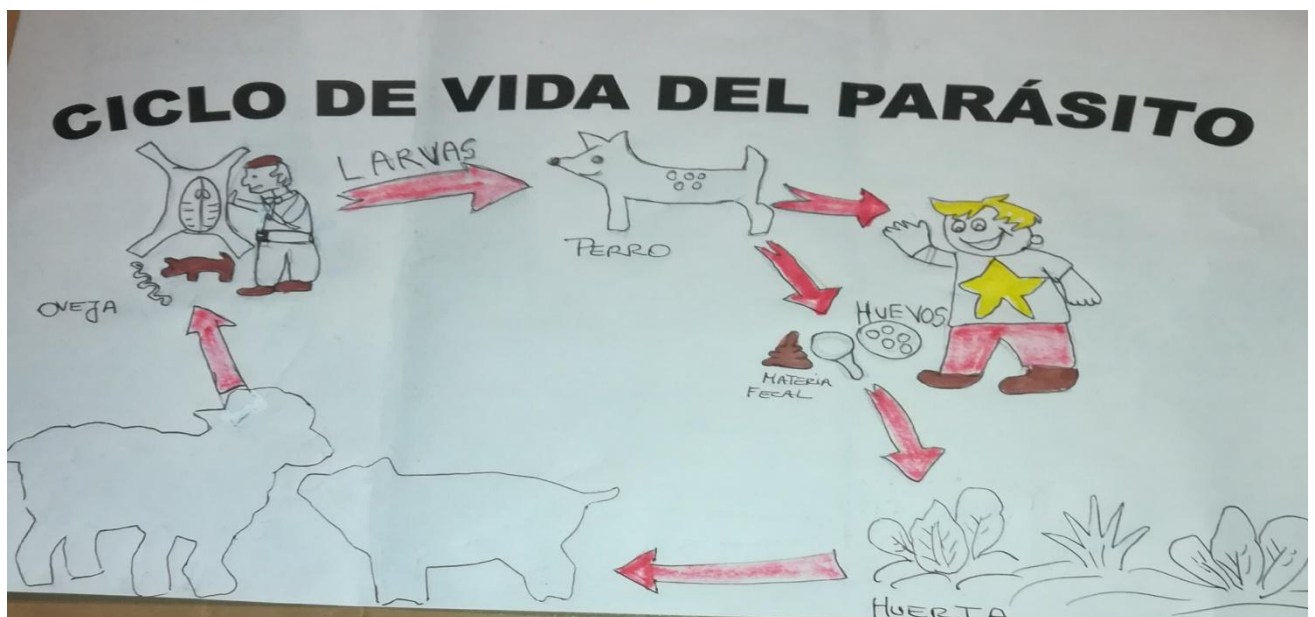 CICLO DE VIDA DEL PARÁSITO
LARVAS
PERRO
OVEJA
HUEVOS
MATERIA
FECAL
HUERTA